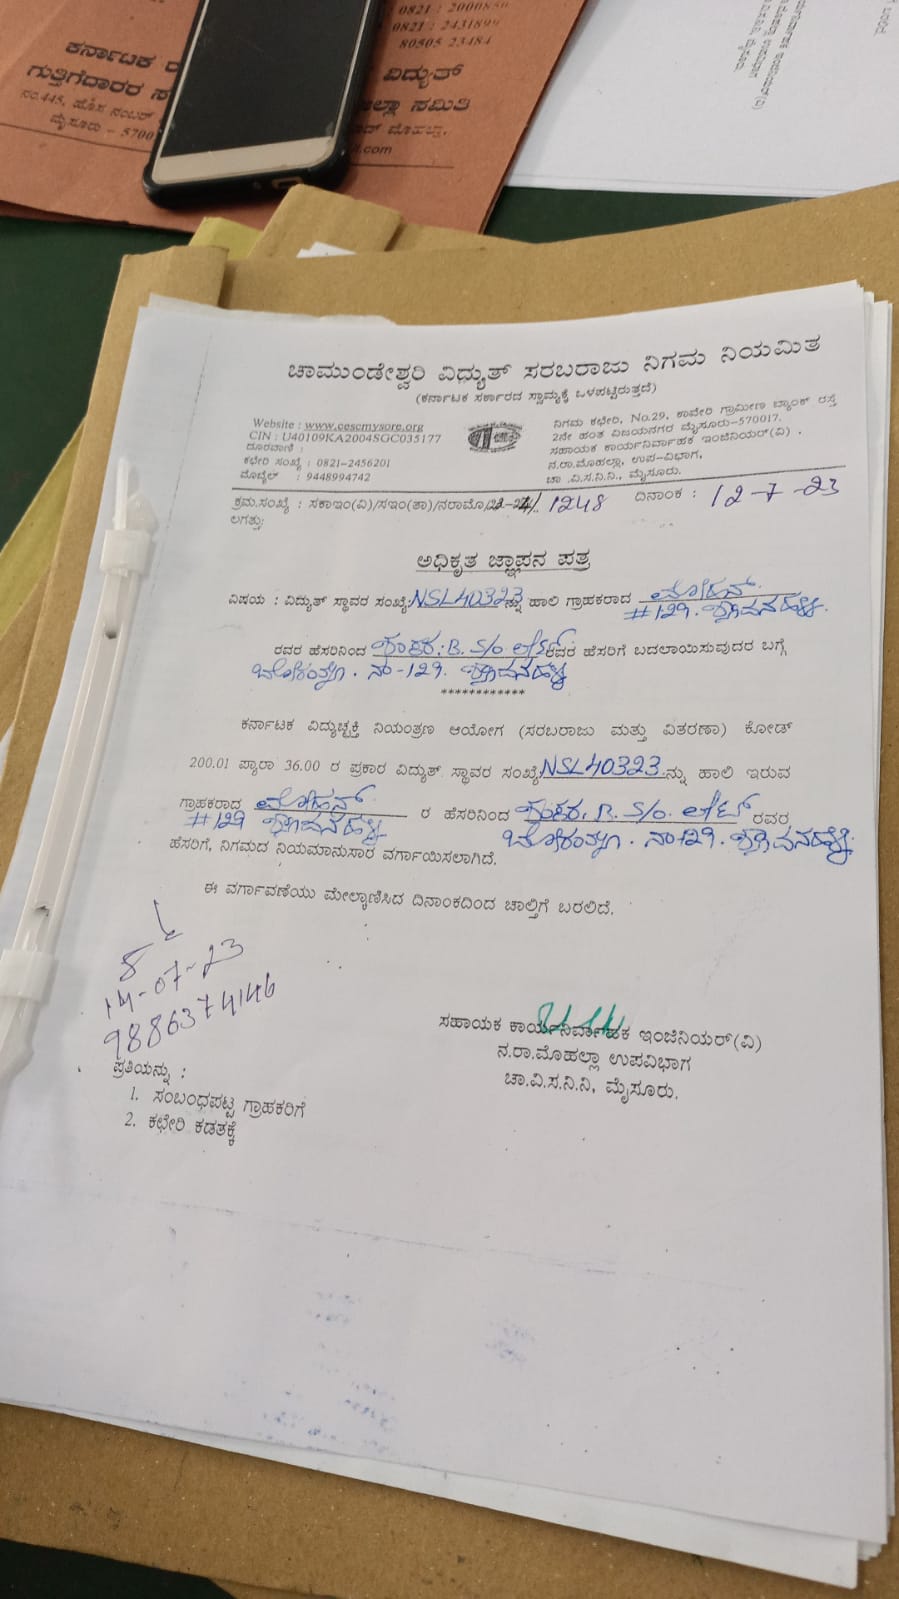 0821 : 2431899
80505 23484
ಕರ್ನಾಟಕ
ವಿದ್ಯುತ್
ಗುತ್ತಿಗೆದಾರರ
ಜಿಲ್ಲಾ ಸಮಿತಿ
ನಂ.445, ಹೊಸ ನಂಬರ್
ಮೈಸೂರು - 5700
ಚಾಮುಂಡೇಶ್ವರಿ ವಿಧ್ಯುತ್ ಸರಬರಾಜು ನಿಗಮ ನಿಯಮಿತ
(ಕರ್ನಾಟಕ ಸರ್ಕಾರದ ಸ್ವಾಮ್ಯಕ್ಕೆ ಒಳಪಟ್ಟಿರುತ್ತದೆ)
Website : www.cescmysore.org
CIN : U40109KA2004SGC035177
ದೂರವಾಣಿ :
ಕಛೇರಿ ಸಂಖ್ಯೆ : 0821-2456201
ಮೊಬೈಲ್ : 9448994742
ನಿಗಮ ಕಛೇರಿ, No.29, ಕಾವೇರಿ ಗ್ರಾಮೀಣ ಬ್ಯಾಂಕ್ ರಸ್ತೆ
2ನೇ ಹಂತ ವಿಜಯನಗರ ಮೈಸೂರು-570017.
ಸಹಾಯಕ ಕಾರ್ಯನಿರ್ವಾಹಕ ಇಂಜಿನಿಯರ್(ವಿ) .
ನ.ರಾ.ಮೊಹಲ್ಲಾ, ಉಪ-ವಿಭಾಗ,
ಚಾ .ವಿ.ಸ.ನಿ.ನಿ., ಮೈಸೂರು.
ಕ್ರಮ.ಸಂಖ್ಯೆ : ಸಕಾಇಂ(ವಿ)/ಸಇಂ(ತಾ)/ನರಾಮೊ/ 1248 ದಿನಾಂಕ : 12-7-23
ಲಗತ್ತು:
ಅಧಿಕೃತ ಜ್ಞಾಪನ ಪತ್ರ
ವಿಷಯ : ವಿದ್ಯುತ್ ಸ್ಥಾವರ ಸಂಖ್ಯೆ:NSL40323ನ್ನು ಹಾಲಿ ಗ್ರಾಹಕರಾದ ಮೋಹನ್
#129.
ರವರ ಹೆಸರಿನಿಂದ B. S/o ರವರ ಹೆಸರಿಗೆ ಬದಲಾಯಿಸುವುದರ ಬಗ್ಗೆ
ನಂ-129.
************
ಕರ್ನಾಟಕ ವಿದ್ಯುಚ್ಛಕ್ತಿ ನಿಯಂತ್ರಣ ಆಯೋಗ (ಸರಬರಾಜು ಮತ್ತು ವಿತರಣಾ) ಕೋಡ್
200.01 ಪ್ಯಾರಾ 36.00 ರ ಪ್ರಕಾರ ವಿದ್ಯುತ್ ಸ್ಥಾವರ ಸಂಖ್ಯೆ:NSL40323ನ್ನು ಹಾಲಿ ಇರುವ
ಗ್ರಾಹಕರಾದ ಮೋಹನ್ ರ ಹೆಸರಿನಿಂದ B. S/o. ರವರ
#129 ನಂ-129.
ಹೆಸರಿಗೆ, ನಿಗಮದ ನಿಯಮಾನುಸಾರ ವರ್ಗಾಯಿಸಲಾಗಿದೆ.
ಈ ವರ್ಗಾವಣೆಯು ಮೇಲ್ಕಾಣಿಸಿದ ದಿನಾಂಕದಿಂದ ಚಾಲ್ತಿಗೆ ಬರಲಿದೆ.
14-07-23
9886374146
ಸಹಾಯಕ ಕಾರ್ಯನಿರ್ವಾಹಕ ಇಂಜಿನಿಯರ್(ವಿ)
ನ.ರಾ.ಮೊಹಲ್ಲಾ ಉಪವಿಭಾಗ
ಚಾ.ವಿ.ಸ.ನಿ.ನಿ, ಮೈಸೂರು.
ಪ್ರತಿಯನ್ನು :
1. ಸಂಬಂಧಪಟ್ಟ ಗ್ರಾಹಕರಿಗೆ
2. ಕಛೇರಿ ಕಡತಕ್ಕೆ